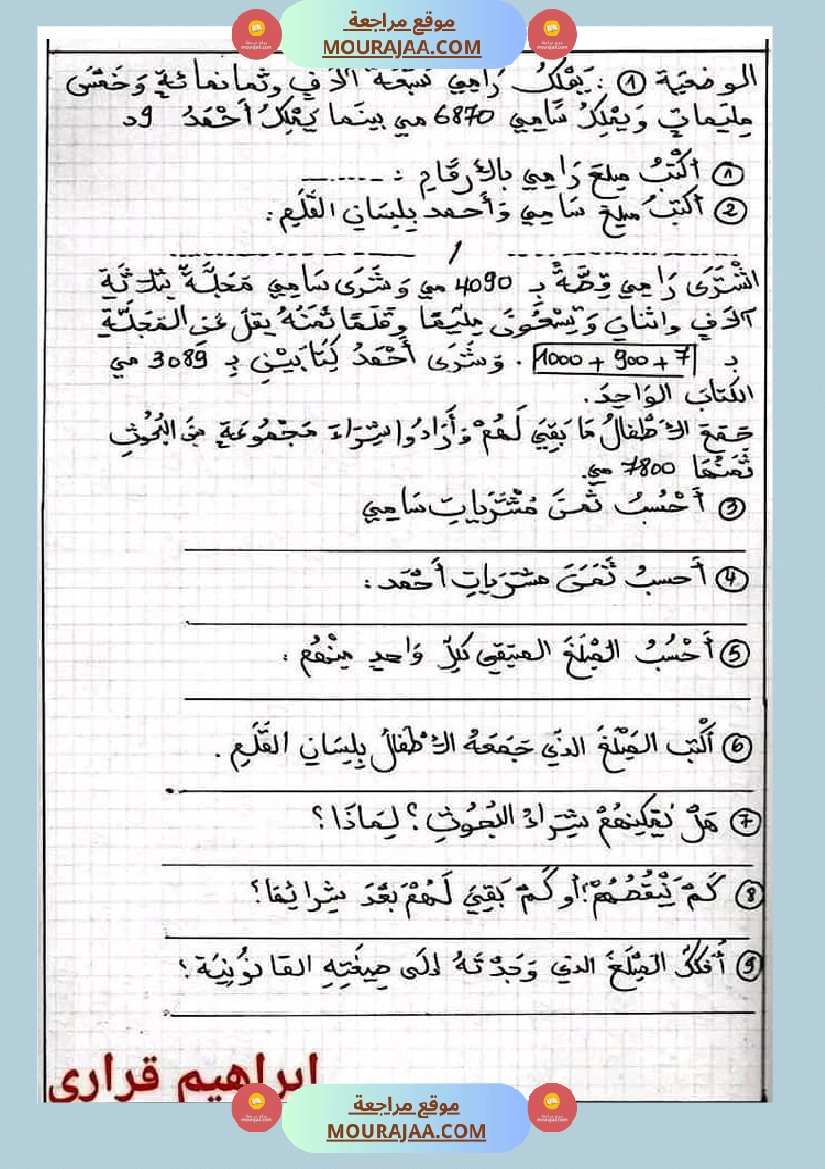 موقع مراجعة
MOURAJAA.COM
الوضعية ① : يَمْلِكُ رَامِي سَبْعَةَ آلَافٍ وثمانمائةٍ وَخَمْسَ
مِلّيماتٍ وَيَمْلِكُ سَّامِي 6870 مي بينَما يَمْلِكُ أَحْمَدُ 9د
① أَكْتُبُ مبلغَ رَامِي بالأرقَامِ : ........
② أكتبُ مبلغ سَامِي وَأحمد بِلِسَانِ القَلَمِ :
.................. / ..................
اشْتَرَى رَامِي قِصَّةً بِـ 4090 مي وَشَرَى سَامِي مَجَلَّةً بِثلاثَةِ
آلافِ واثنان وَتِسْعُونَ مِليمًا وقلمًا ثمَنُهُ يقلّ عَنِ المَجَلَّةِ
بـ 1000 + 900 + 7 . وَشَرَى أَحْمَدُ كِتَابَيْنِ بِـ 3089 مي
الكتابَ الوَاحِدَ.
جَمَعَ الأَطْفَالُ مَا بَقِيَ لَهُمْ وَأَرَادُوا شِرَاءَ مَجْمُوعَةٍ مِنَ البُحُوثِ
ثَمَنُهَا 7800 مي.
③ أَحْسُبُ ثَمَنَ مُشْتَرَيَاتِ سَامِي
④ أَحسبُ ثَمَنَ مشترَيَاتِ أَحْمَد :
⑤ أَحْسُبُ المَبْلَغَ المتبقي لكلّ وَاحدٍ مِنْهُم :
⑥ أَكْتب المَبْلَغَ الذي جَمَعَهُ الأطْفَالُ بِلِسَانِ القَلَمِ .
⑦ هَلْ يُمْكِنُهُمْ شِرَاءُ البُحُوثِ ؟ لِمَاذَا ؟
⑧ كَمْ يَنْقُصُهُمْ؟ أو كَمْ بَقِيَ لَهُمْ بَعْدَ شِرائها؟
⑨ أُفَكِّكُ المَبْلَغَ الذي وَجَدْتَهُ إلى صِيغَتِهِ القَانُونِيَّة ؛
ابراهيم قراري
موقع مراجعة
MOURAJAA.COM